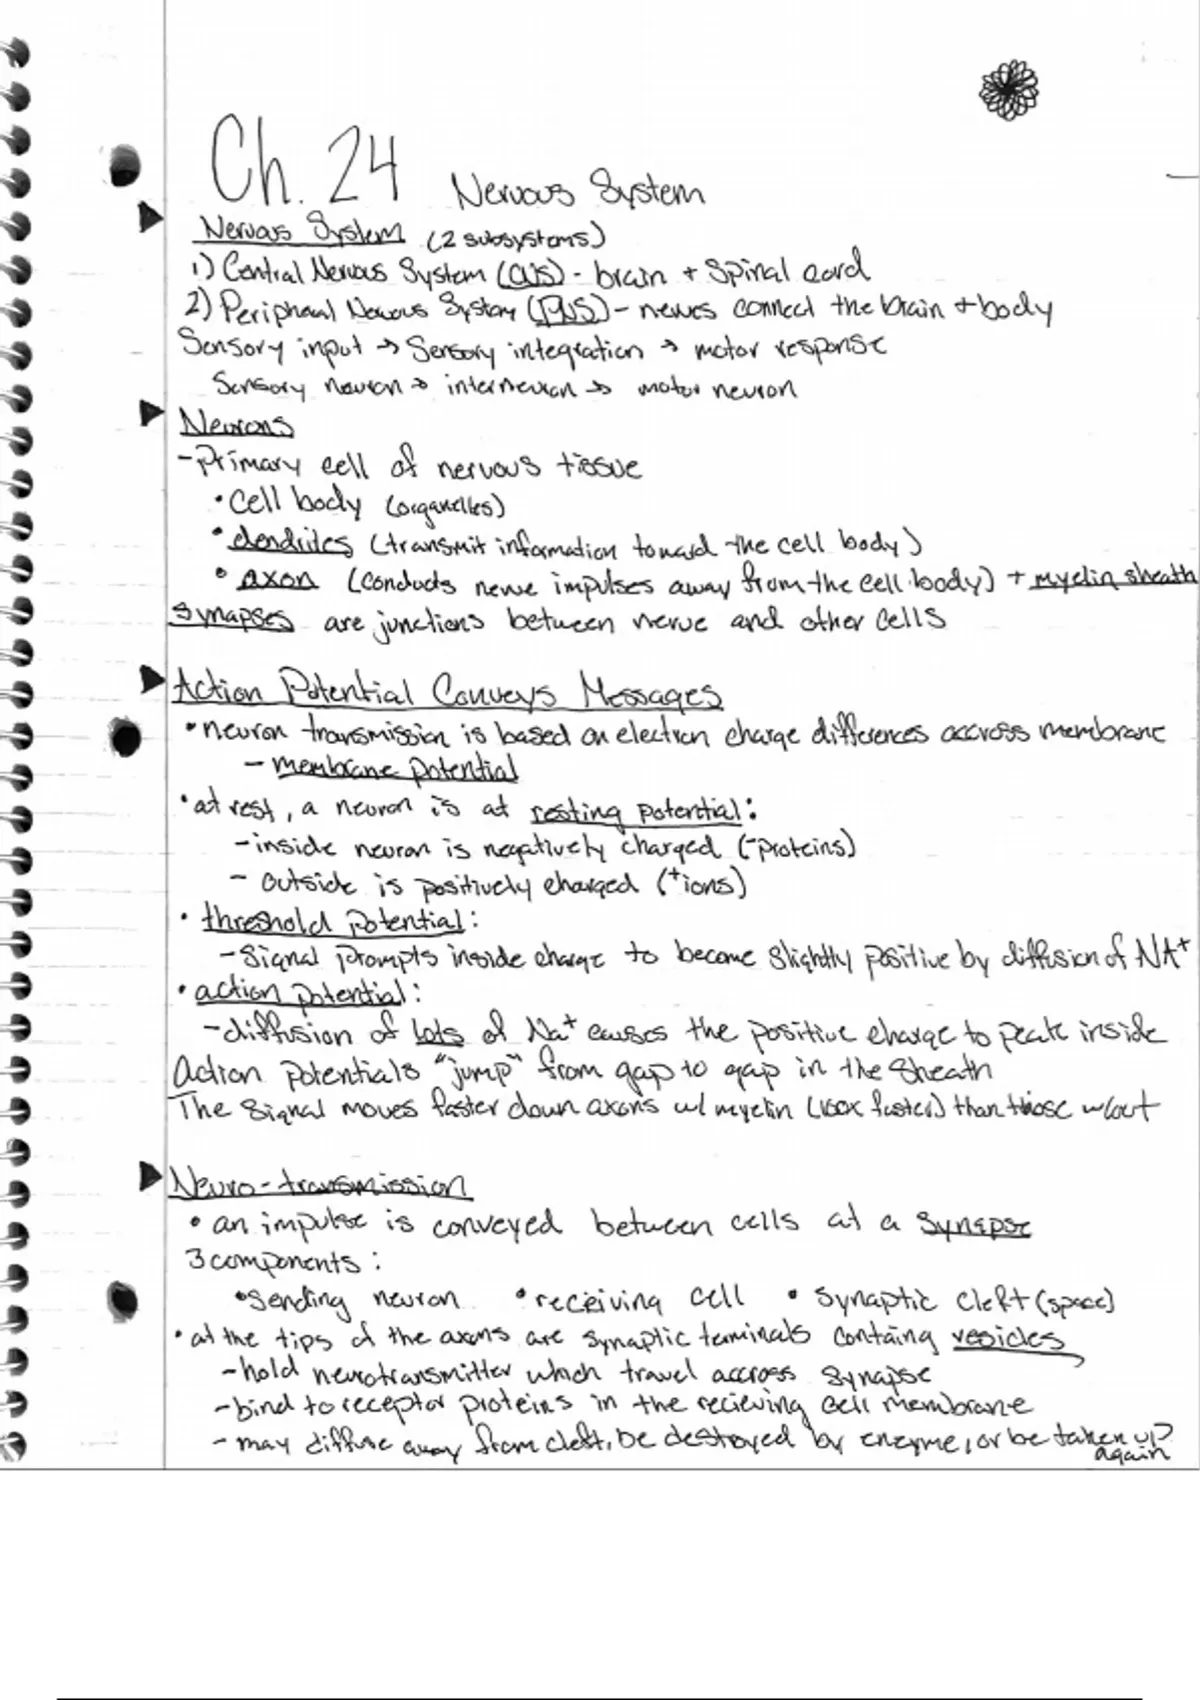 Ch. 24 Nervous System
Nervous System (2 subsystems)
1) Central Nervous System (CNS) - brain + Spinal cord
2) Peripheral Nervous System (PNS) - nerves connect the brain + body
Sensory input → Sensory integration → motor response
Sensory neuron → interneuron → motor neuron
Neurons
- Primary cell of nervous tissue
• Cell body (organelles)
• dendrites (transmit information toward the cell body)
• axon (conducts nerve impulses away from the cell body) + myelin sheath
Synapses are junctions between nerve and other cells
Action Potential Conveys Messages
• neuron transmission is based on electron charge differences accross membrane
- membrane potential
• at rest, a neuron is at resting potential:
- inside neuron is negatively charged (-proteins)
- outside is positively charged (+ions)
• threshold potential:
- Signal prompts inside charge to become slightly positive by diffusion of NA+
• action potential:
- diffusion of lots of Na+ causes the positive charge to peak inside
Action potentials "jump" from gap to gap in the sheath
The signal moves faster down axons w/ myelin (100x faster) than those w/out
Neuro-transmission
• an impulse is conveyed between cells at a synapse
3 components:
• Sending neuron • receiving cell • synaptic cleft (space)
• at the tips of the axons are synaptic terminals containg vesicles
- hold neurotransmitter which travel accross synapse
- bind to receptor proteins in the recieving cell membrane
- may diffuse away from cleft, be destroyed by enzyme, or be taken up
again